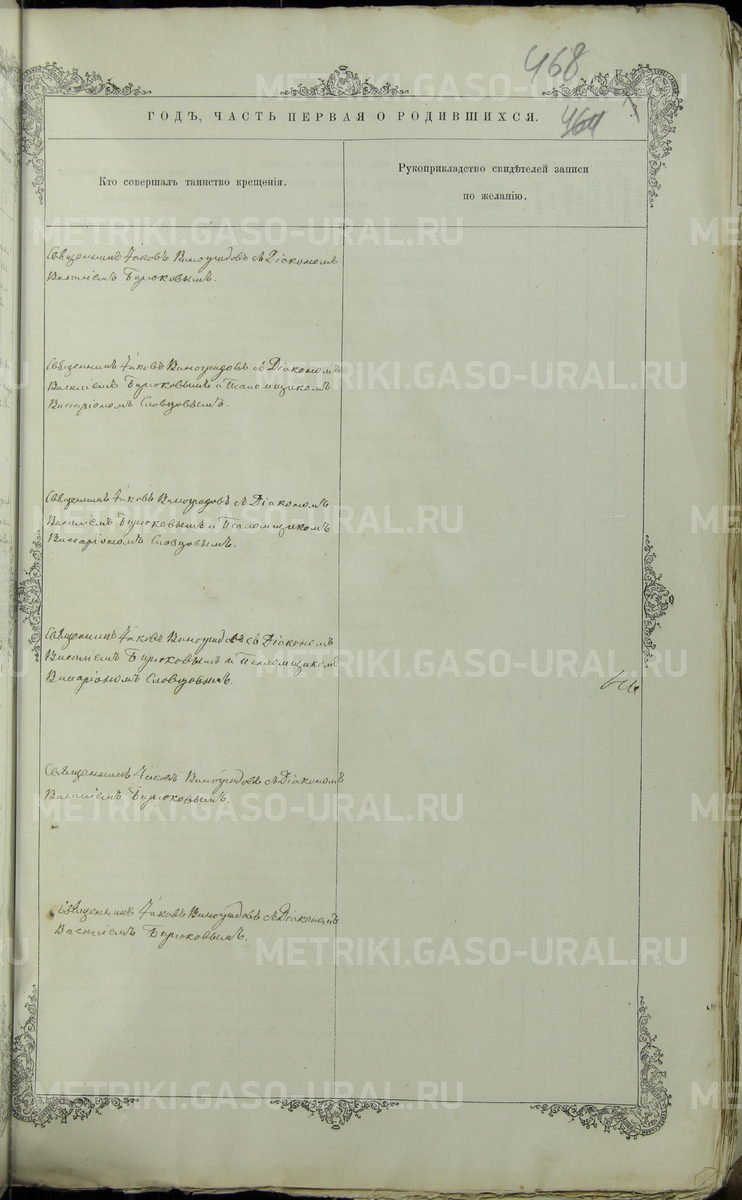 468
464
ГОДЪ, ЧАСТЬ ПЕРВАЯ О РОДИВШИХСЯ.
Кто совершалъ таинство крещенія.
Рукоприкладство свидѣтелей записи
по желанію.
Священникъ Іаковъ Виноградовъ съ Діакономъ
Василіемъ Бирюковымъ.
Священникъ Іаковъ Виноградовъ съ Діакономъ
Василіемъ Бирюковымъ и Псаломщикомъ
Виссаріономъ Словцовымъ.
Священникъ Іаковъ Виноградовъ съ Діакономъ
Василіемъ Бирюковымъ и Псаломщикомъ
Виссаріономъ Словцовымъ.
Священникъ Іаковъ Виноградовъ съ Діакономъ
Василіемъ Бирюковымъ и Псаломщикомъ
Виссаріономъ Словцовымъ.
Священникъ Іаковъ Виноградовъ съ Діакономъ
Василіемъ Бирюковымъ.
Священникъ Іаковъ Виноградовъ съ Діакономъ
Василіемъ Бирюковымъ.
METRIKI.GASO-URAL.RU